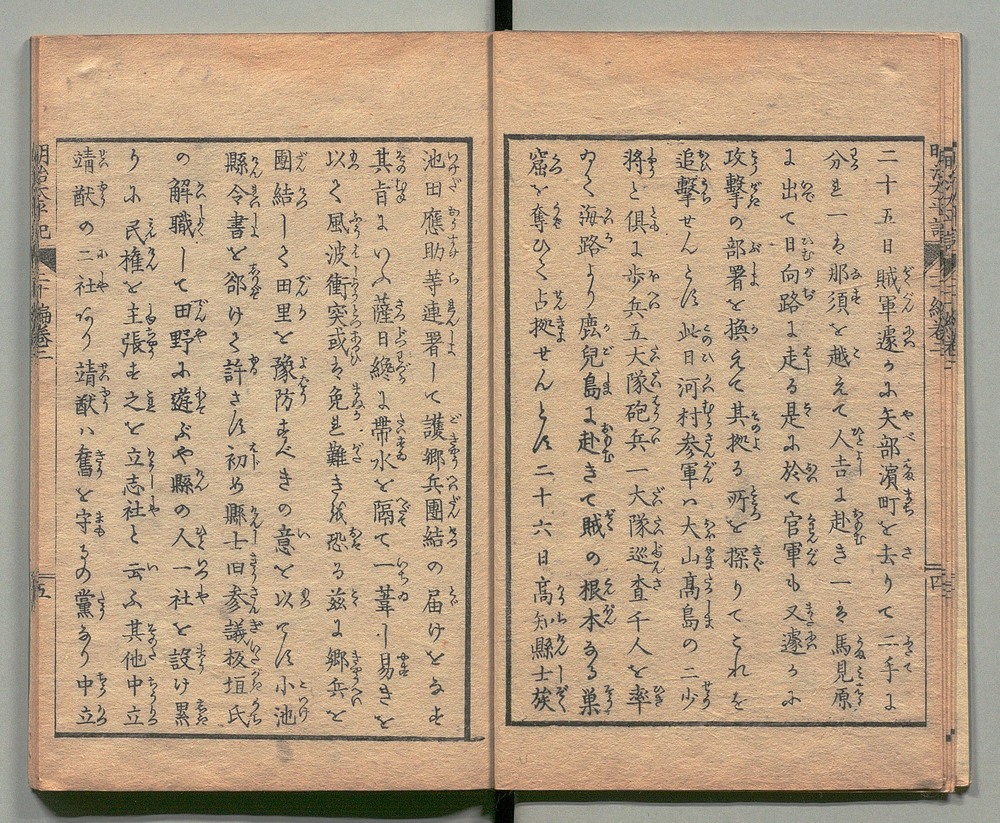 二十五日賊軍遽かに矢部濵町を去りて二手に
分れ一は那須を越えて人吉に赴き一は馬見原
に出て日向路に走る是に於て官軍も又遽かに
攻撃の部署を換えて其拠る所を探りてこれを
追撃せんとす此日河村参軍ハ大山髙島の二少
将と倶に歩兵五大隊砲兵一大隊巡査千人を率
ゐて海路より鹿兒島に赴きて賊の根本なる巣
窟を奪ひて占拠せんとす二十六日髙知縣士族
池田應助等連署して護郷兵團結の届けをなす
其旨にいふ薩日纔に帶水を隔て一葦し易きを
以て風波衝突或は免れ難きを恐る茲に郷兵を
團結して田里を豫防すべきの意を以てす小池
縣令書を郤けて許さず初め縣士旧参議板垣氏
の解職して田野に遊ぶや縣の人一社を設け累
りに民權を主張す之を立志社と云ふ其他中立
靖献の二社あり靖献ハ舊を守るの黨なり中立
明治太平記 十二編巻二 五